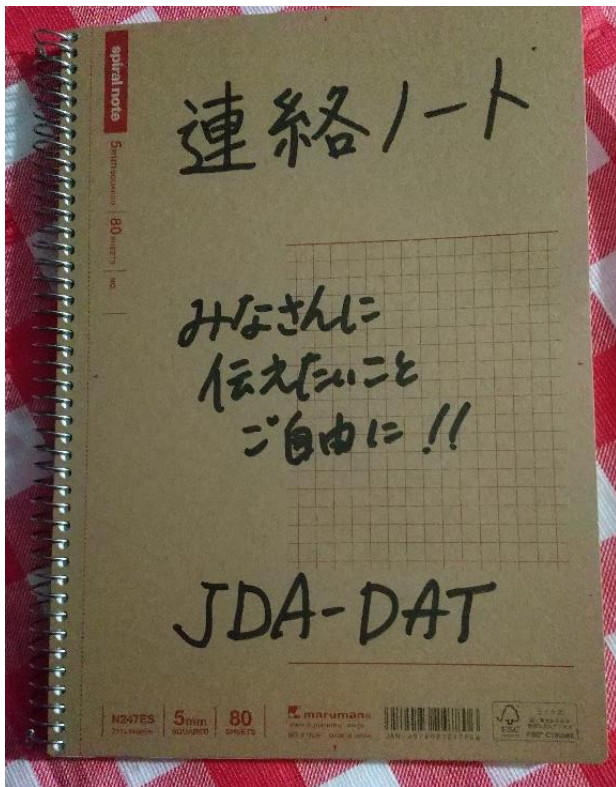 spiral note
5mm SQUARED 80 SHEETS NO.
連絡ノート
みなさんに
伝えたいこと
ご自由に!!
JDA-DAT
N247ES 5mm SQUARED 80 SHEETS
marumans
FSC